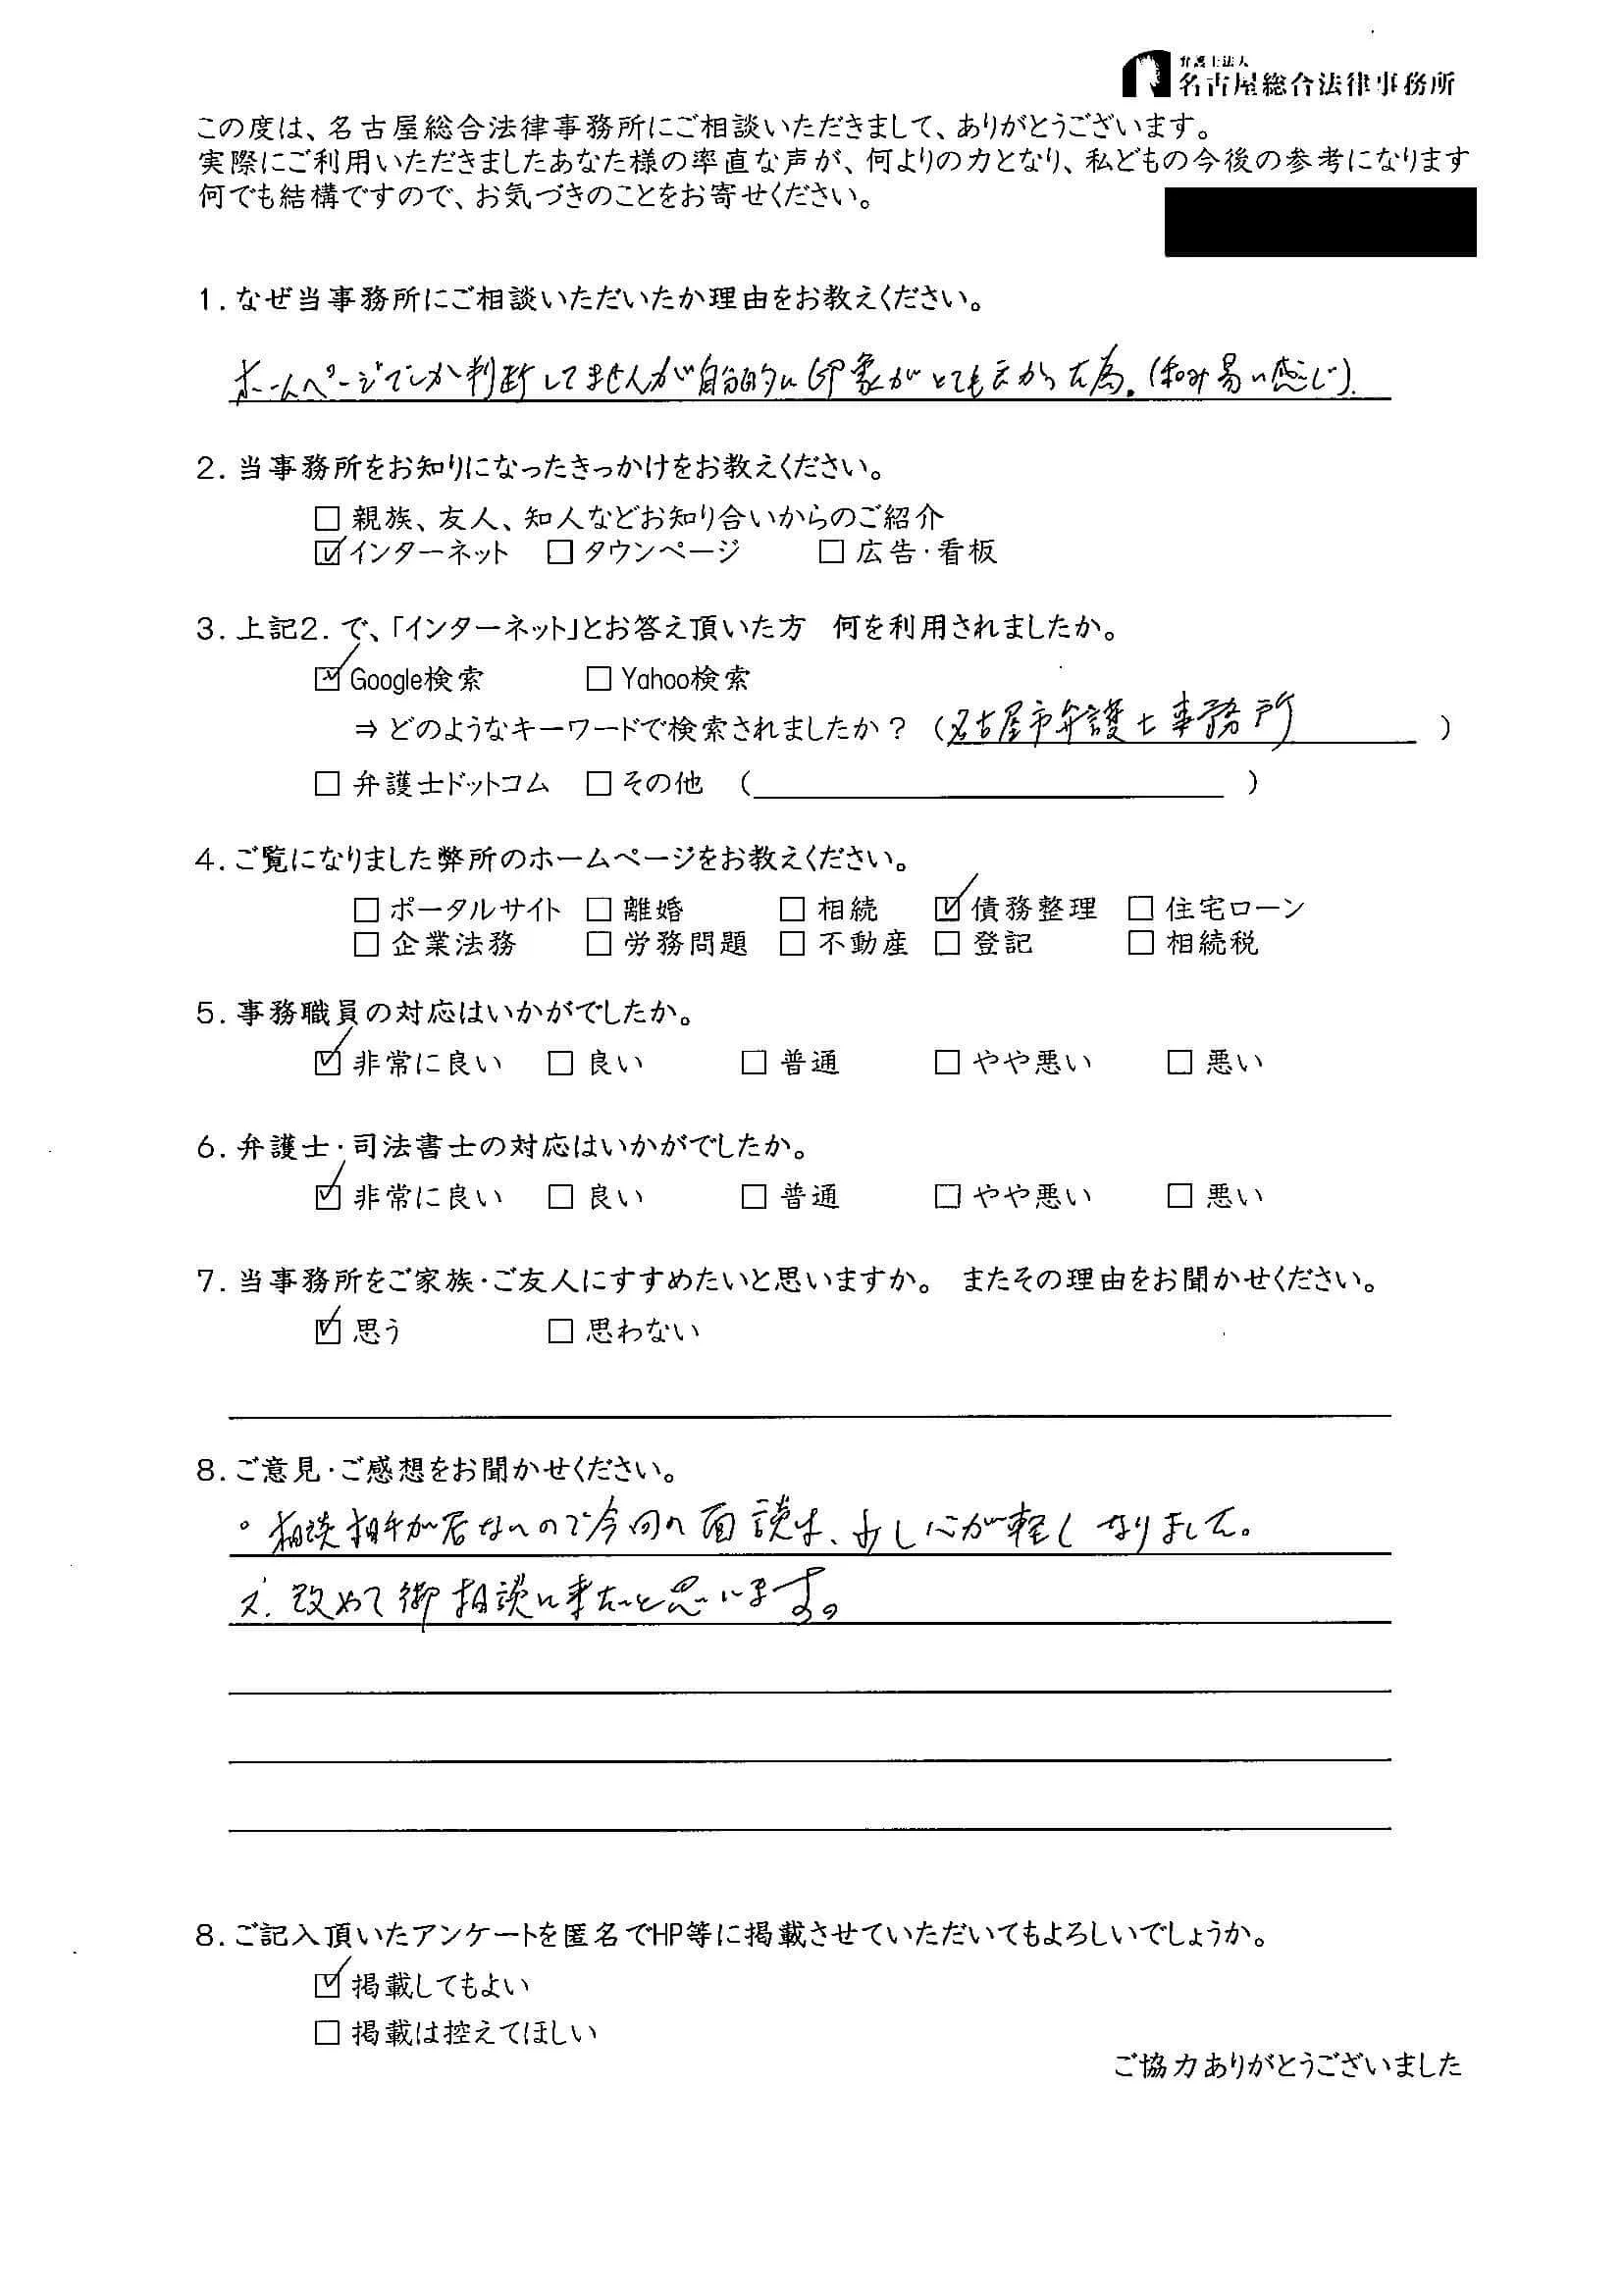 弁護士法人
名古屋総合法律事務所
この度は、名古屋総合法律事務所にご相談いただきまして、ありがとうございます。
実際にご利用いただきましたあなた様の率直な声が、何よりの力となり、私どもの今後の参考になります
何でも結構ですので、お気づきのことをお寄せください。
1. なぜ当事務所にご相談いただいたか理由をお教えください。
ホームページでしか判断してませんが自分的に印象がとても良かった為。(和み易い感じ).
2. 当事務所をお知りになったきっかけをお教えください。
□ 親族、友人、知人などお知り合いからのご紹介
☑ インターネット □ タウンページ □ 広告・看板
3. 上記2. で、「インターネット」とお答え頂いた方 何を利用されましたか。
☑ Google検索 □ Yahoo検索
⇒ どのようなキーワードで検索されましたか? (名古屋市弁護士事務所)
□ 弁護士ドットコム □ その他 ( )
4. ご覧になりました弊所のホームページをお教えください。
□ ポータルサイト □ 離婚 □ 相続 ☑ 債務整理 □ 住宅ローン
□ 企業法務 □ 労務問題 □ 不動産 □ 登記 □ 相続税
5. 事務職員の対応はいかがでしたか。
☑ 非常に良い □ 良い □ 普通 □ やや悪い □ 悪い
6. 弁護士・司法書士の対応はいかがでしたか。
☑ 非常に良い □ 良い □ 普通 □ やや悪い □ 悪い
7. 当事務所をご家族・ご友人にすすめたいと思いますか。 またその理由をお聞かせください。
☑ 思う □ 思わない
8. ご意見・ご感想をお聞かせください。
。相談相手が居ないので今回の面談は、少し心が軽くなりました。
又、改めて御相談に来たいと思います。
8. ご記入頂いたアンケートを匿名でHP等に掲載させていただいてもよろしいでしょうか。
☑ 掲載してもよい
□ 掲載は控えてほしい
ご協力ありがとうございました